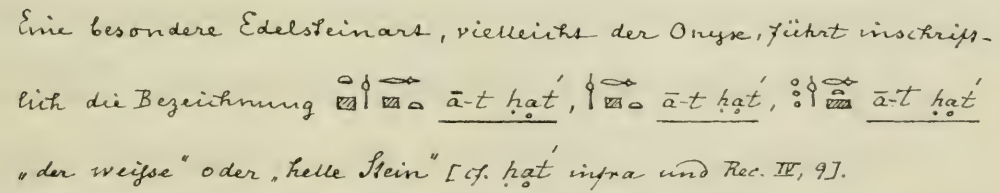 Eine besondere Edelsteinart, vielleicht der Onyx, führt inschrift-
lich die Bezeichnung ā-t ḥat́, ā-t ḥat́, ā-t ḥat́
„der weiſse" oder „helle Stein" [cf. ḥat́ infra und Rec. IV, 9].